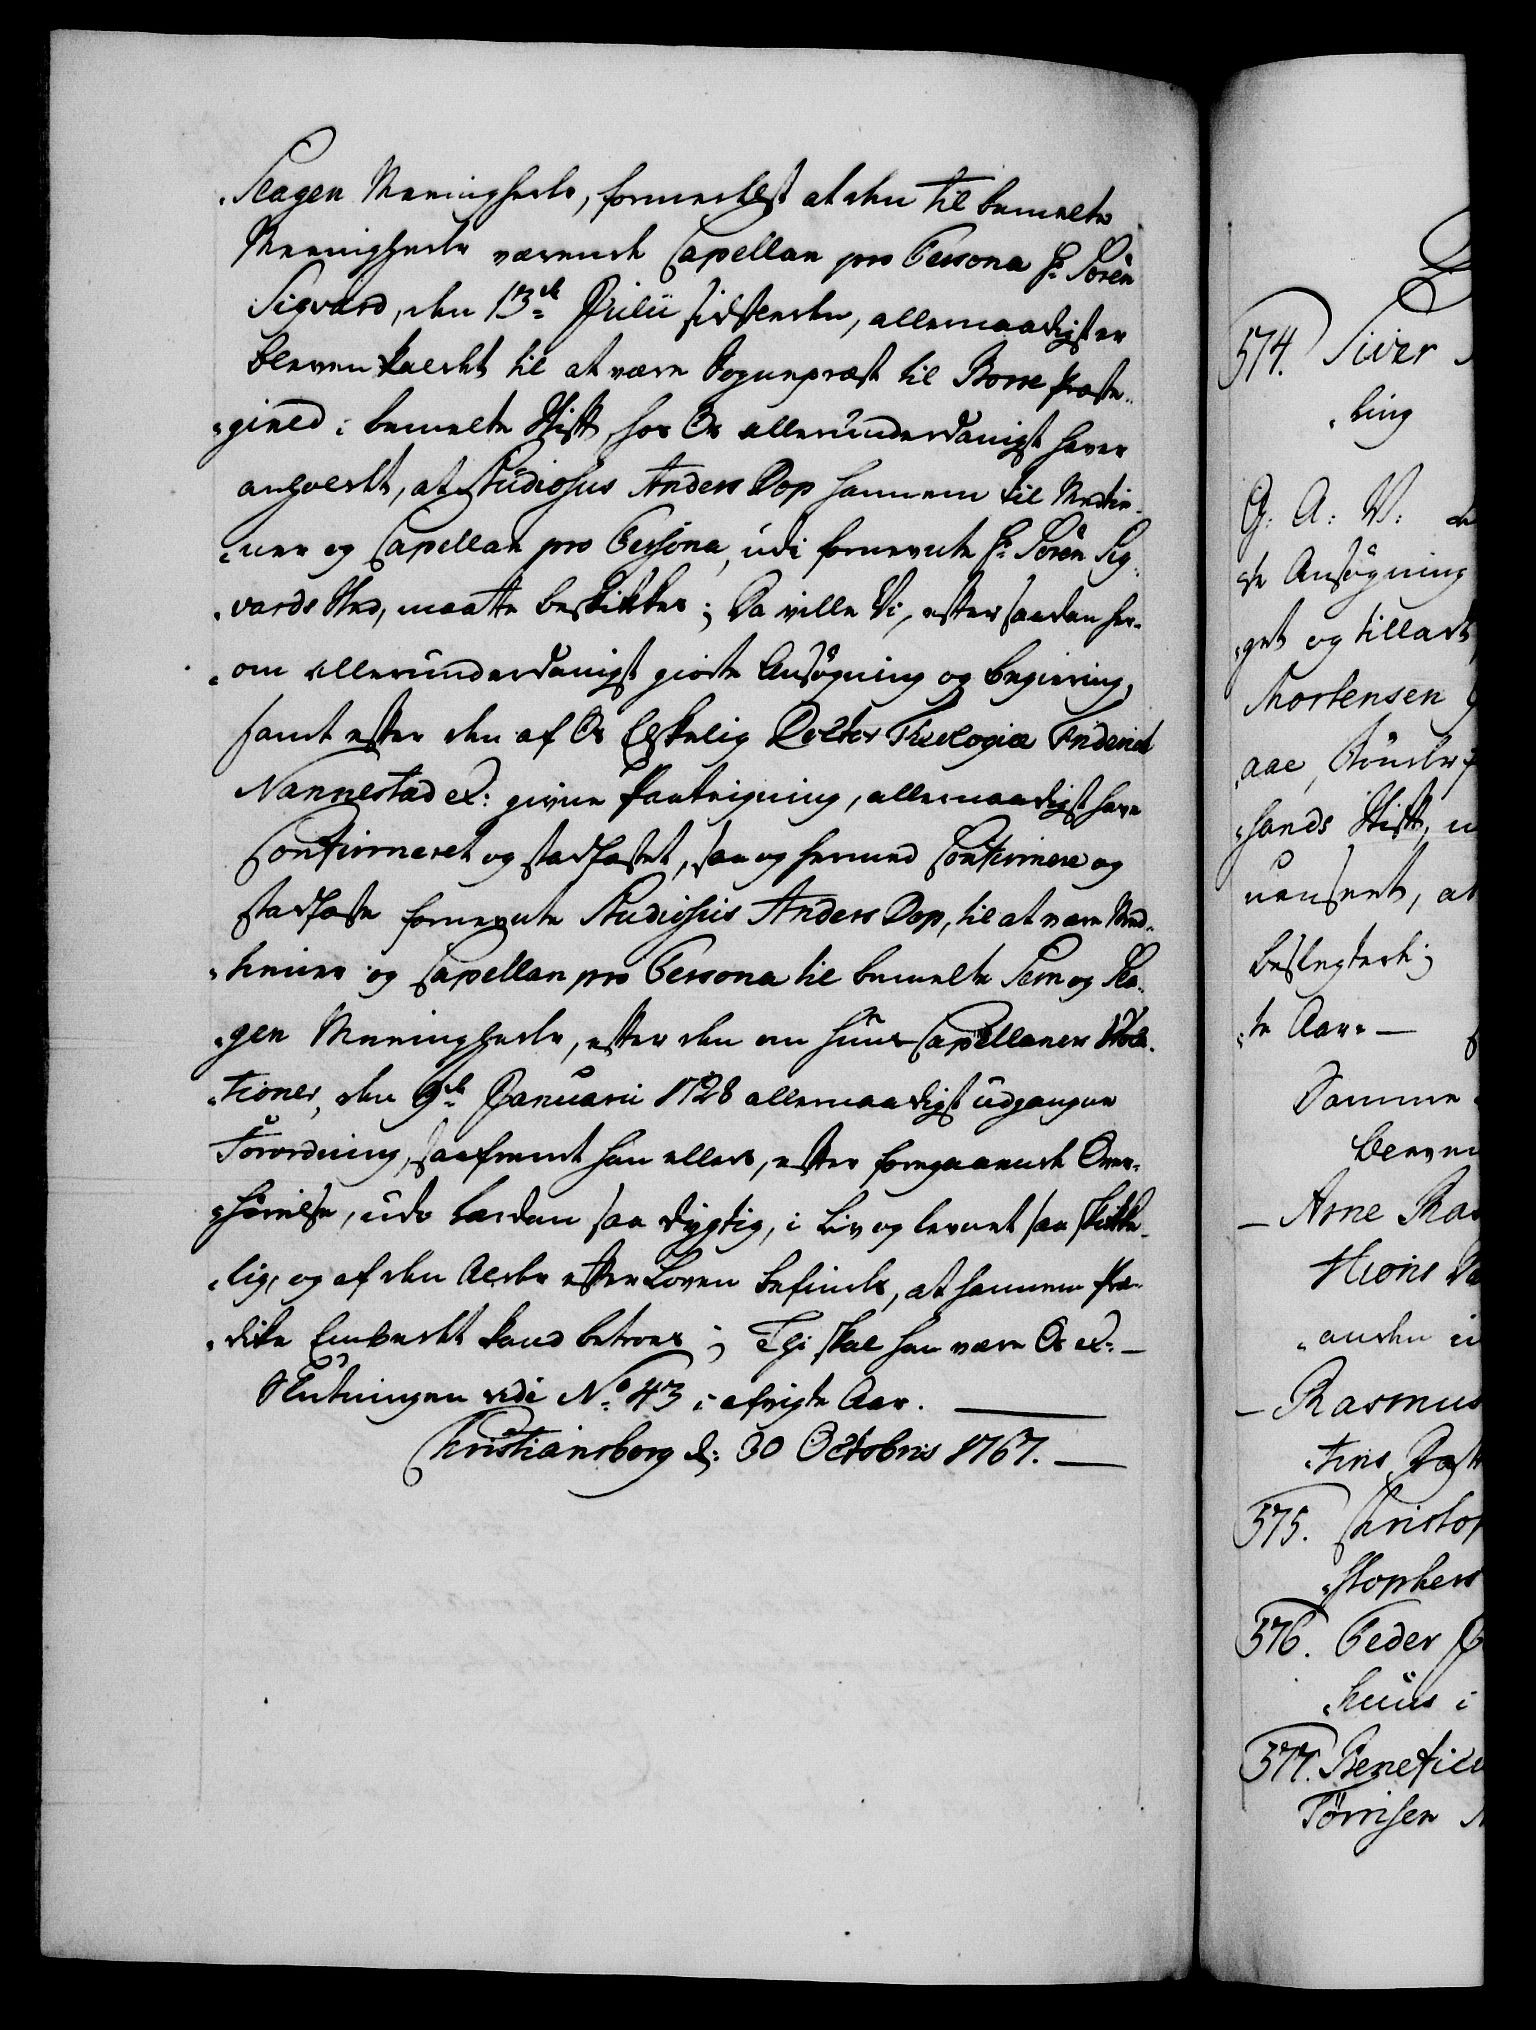 Slagen Meenigheder, formedelst at den til bemelte
Meenigheder værende Capellan pro Persona Hr. Sørèn
Sigvard, den 13de Julii sidstleden, allernaadigst er
bleven kaldet til at være Sognepræst til Borre Præste-
gield i bemelte Stift, hos Os allerunderdanigst haver
anholdt, at Studiosus Anders Dop hannem til Medtie-
ner og Capellan pro Persona, udi fornevnte Hr. Sørèn Sig-
vards Sted, maatte beskikkes; Da ville Vi, efter saadan her-
om allerunderdanigst giorte Ansøgning og begiering,
samt efter den af Os Elskelig Doctor Theologiæ Friderich
Nannestad etc: givne Paategning, allernaadigst have
Confirmeret og stadfæstet, saa og hermed Confirmere og
stadfæste fornevnte Studiosus Anders Dop, til at være Med-
tiener og Capellan pro Persona til bemelte Sem og Sla-
gen Meenigheder, efter den om Huus-Capellaners Voca-
tioner, den 9de Januarii 1728 allernaadigst udgangne
Forordning, saafremt han ellers, efter foregaaende Over-
hørelse, udi Lærdom saa dygtig, i Liv og levnet saa skikke-
lig, og af den Alder efter Loven befindes, at hannem Præ-
dike Embedet kand betroes; Thi skal han være Os etc: —
Slutningen vide No. 43 i afvigte Aar. —
Christiansborg d: 30 Octobris 1767. —
574. Siver
ling
G: A: V:
te Ansøgning
get og tilladt,
Mortensen
aae, Bønder
hands Stift,
uanseet, at
beslegtede;
te Aar. —
Samme
Arne Ras
anden
Rasmus
575. Christop
stophers
576. Peder
huus i
577. Benefice
Tørrisen